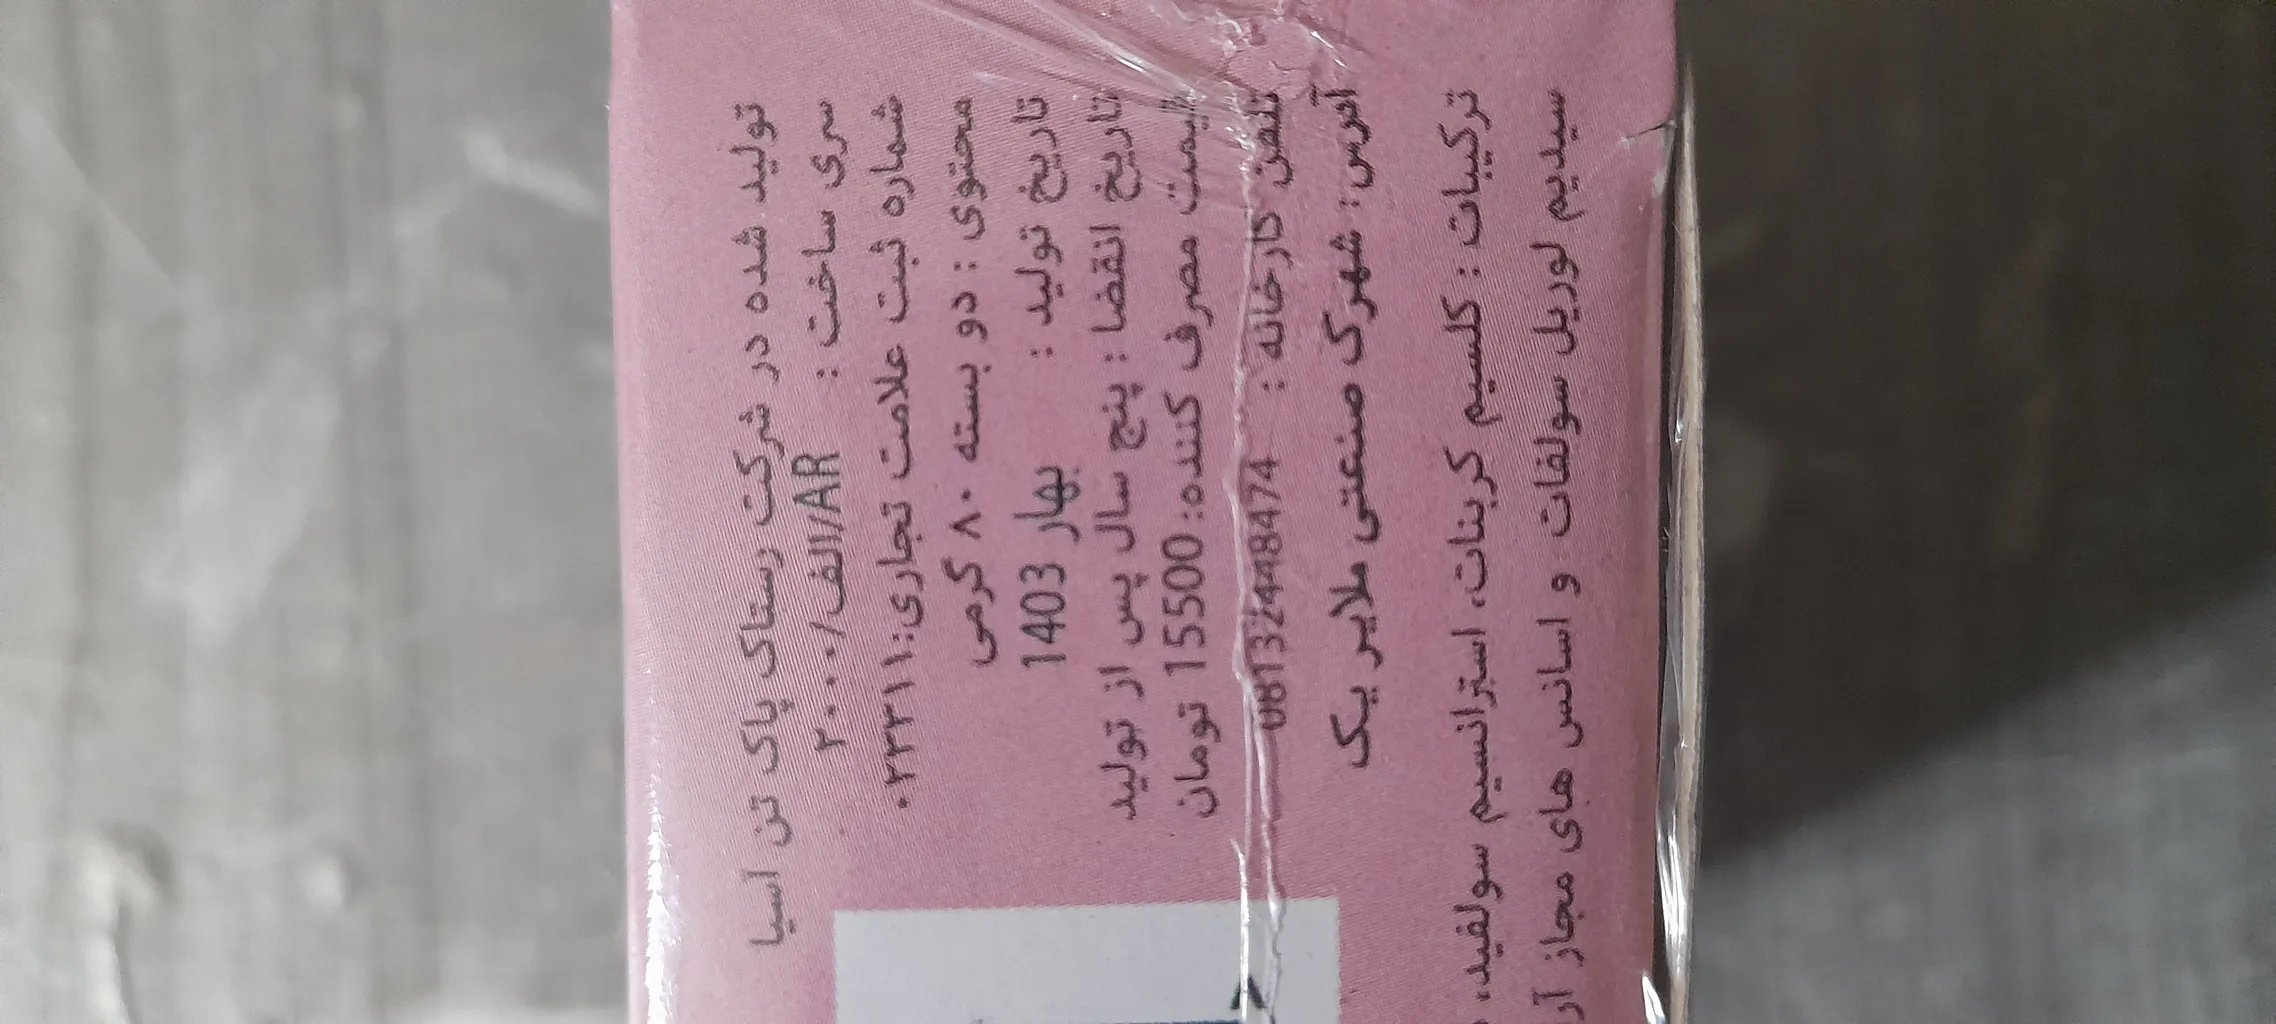 تولید شده در شرکت رستاک پاک تن اسیا
سری ساخت : ۲۰۰۰/الف/AR
شماره ثبت علامت تجاری:۰۲۳۳۱۱
محتوی : دو بسته ۸۰ گرمی
تاریخ تولید : بهار 1403
تاریخ انقضا : پنج سال پس از تولید
قیمت مصرف کننده: 15500 تومان
تلفن کارخانه : 08132448474
آدرس: شهرک صنعتی ملایر یک
ترکیبات : کلسیم کربنات، استرانسیم سولفید،
سیدیم لوریل سولفات و اسانس های مجاز آر